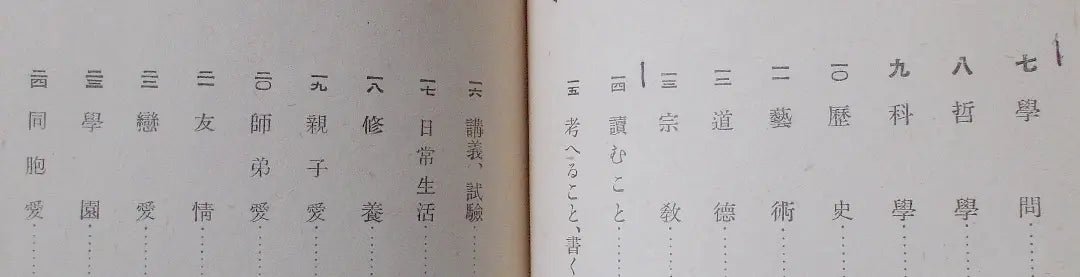 七 學問
八 哲學
九 科學
一〇 歷史
一一 藝術
一二 道德
一三 宗敎
一四 讀むこと……
一五 考へること、書く
一六 講義、試驗
一七 日常生活……
一八 修養……
一九 親子愛……
二〇 師弟愛……
二一 友情……
二二 戀愛……
二三 學園……
二四 同胞愛……